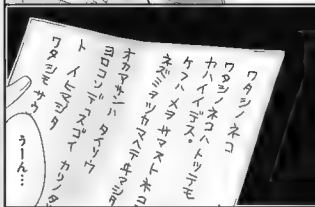 ワタシノネコ
ワタシノネコハトッテモ
カハイイデス。
ケフハメヲサマストネコ
ネズミヲツカマヘテキマシタ
オカアサンハタイソウ
ヨロコンデスゴイカリウダ
トイヒマシタ
ワタシモサウ
うーん…